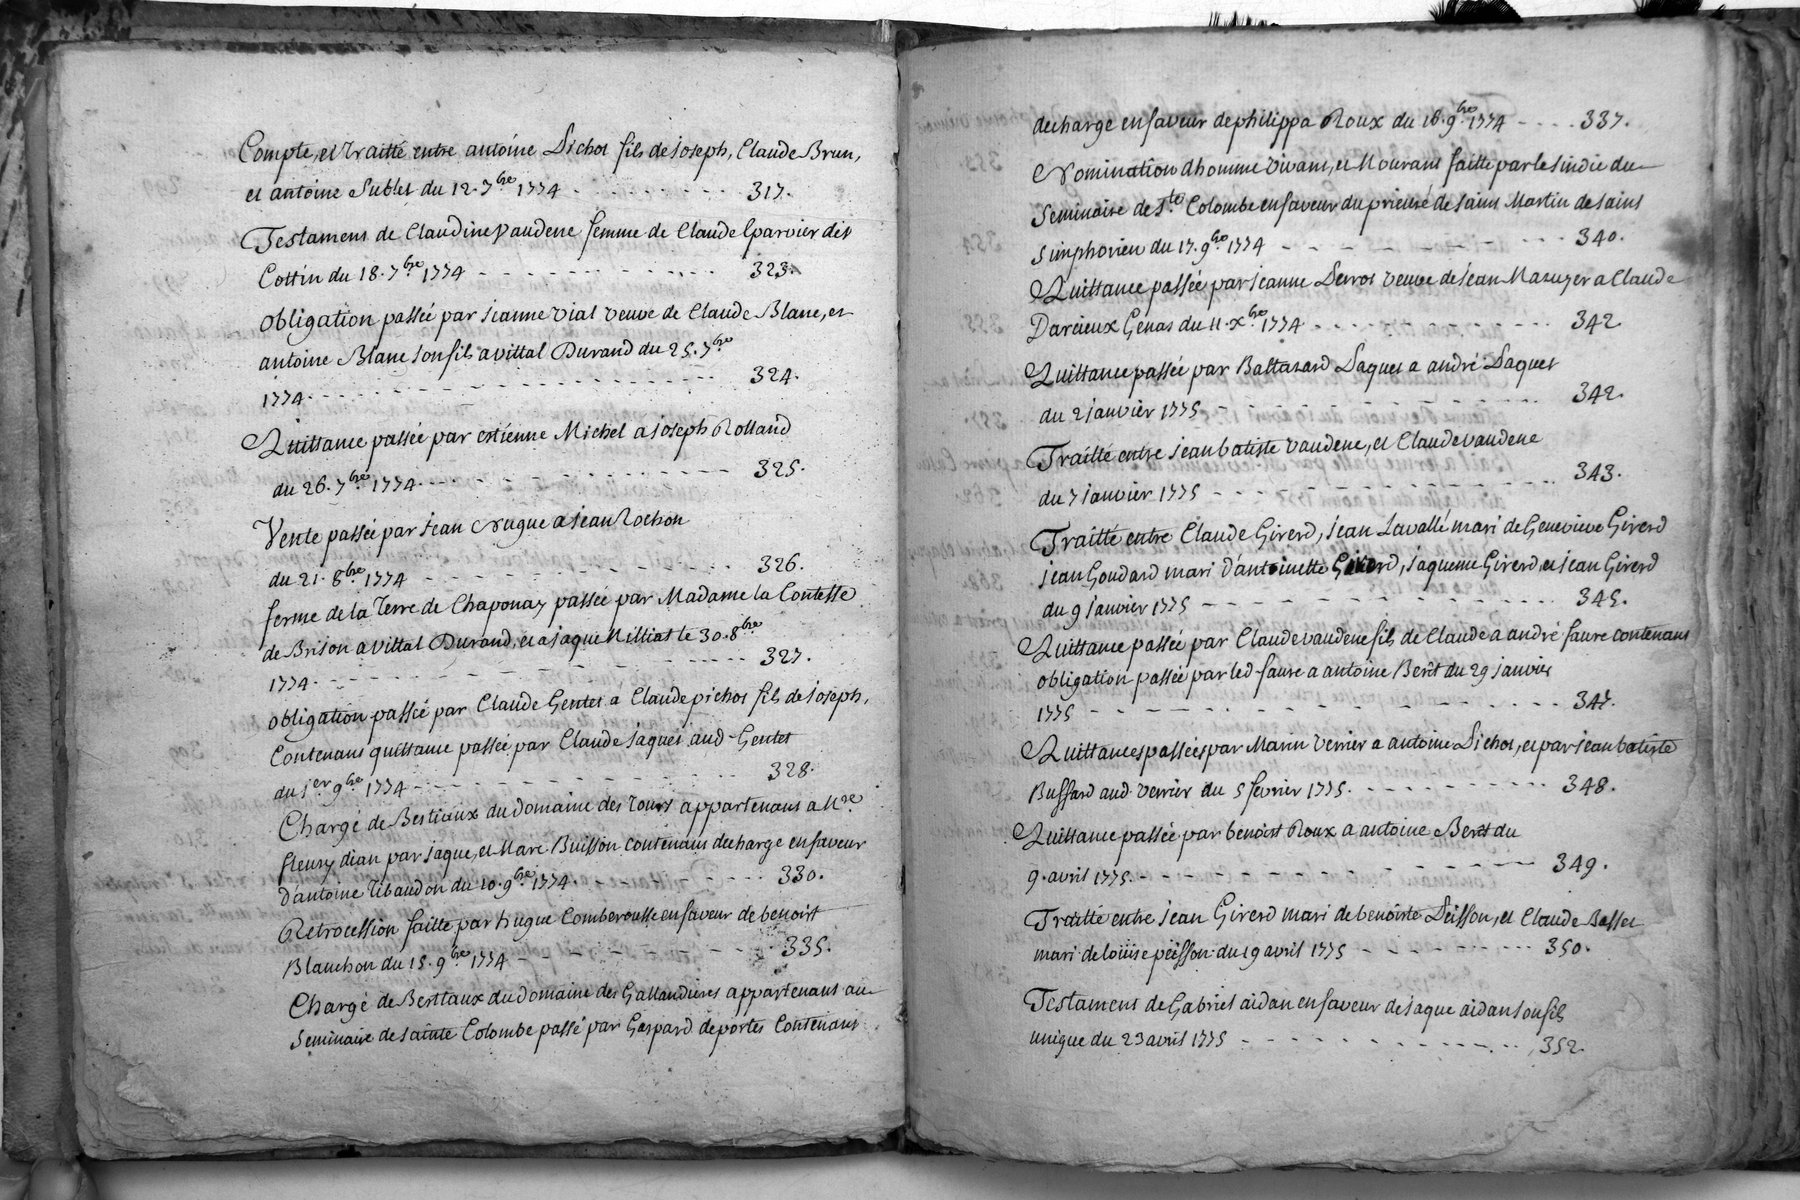 Compte, et Traitté entre antoine Pichot fils de joseph, Claude Brun,
et antoine Sublet du 12. 7bre 1774 - - - - - - - 317.
Testament de Claudine Vaudene femme de Claude Eparvier dit
Cottin du 18. 7bre 1774 - - - - - - - 323.
obligation passée par jeanne Vial veuve de Claude Blanc, et
antoine Blanc son fils a vittal Durand du 25. 7bre
1774. - - - - - - - 324.
Quittance passée par estienne Michel a joseph Rolland
du 26. 7bre 1774. - - - - - - - 325.
Vente passée par jean Nugue a jean Rochon
du 21. 8bre 1774 - - - - - - - 326.
ferme de la Terre de Chaponay passée par Madame la Contesse
de Brison a vittal Durand, et a jaque Milliat le 30. 8bre
1774. - - - - - - - 327.
obligation passée par Claude Gentet a Claude pichot fils de joseph,
Contenant quittance passée par Claude jaques aud Gentet
du 1er 9bre 1774 - - - - - - - 328.
Chargé de Bestiaux du domaine des Tours appartenant a Mre
fleury dian par jaque, et Marc Buisson contenant decharge en faveur
d'antoine Tibaudon du 10. 9bre 1774. - - - - - - - 330.
Retrocession faitte par hugue Comberousse en faveur de benoist
Blanchon du 15. 9bre 1774 - - - - - - - 335.
Chargé de Besttaux du domaine des Gallandieres appartenant au
seminaire de sainte Colombe passé par Gaspard deportes Contenant
decharge en faveur de philippa Roux du 16. 9bre 1774 - - - - 337.
Nomination dhomme vivant, et Mourant faitte par le sindic du
seminaire de Ste Colombe en faveur du prieuré de saint Martin de saint
simphorien du 17. 9bre 1774 - - - - - - - 340.
Quittance passée par jeanne Perrot veuve de jean Mazuyer a Claude
Darcieux Genas du 11. Xbre 1774 - - - - - - - 342
Quittance passée par Baltazard Paquet a andré Paquet
du 2 janvier 1775 - - - - - - - 342.
Traitté entre jean batiste vaudene, et Claude vaudene
du 7 janvier 1775 - - - - - - - 343.
Traitté entre Claude Girerd, jean Lavallé mari de Genevieve Girerd
jean Goudard mari d'antoinette Girerd, jaqueme Girerd, et jean Girerd
du 9 janvier 1775 - - - - - - - 345.
Quittance passée par Claude vaudene fils de Claude a andré faure contenant
obligation passée par led faure a antoine Berit du 29 janvier
1775 - - - - - - - 347.
Quittances passées par Marin verrier a antoine Pichot, et par jean batiste
Bussard aud verrier du 5 fevrier 1775. - - - - - - - 348.
Quittance passée par benoist Roux a antoine Berit du
9. avril 1775. - - - - - - - 349.
Traitté entre jean Girerd mari de benoiste Peisson, et Claude Basset
mari de loüise peisson du 19 avril 1775 - - - - - - - 350.
Testament de Gabriel aidan en faveur de jaque aidan son fils
unique du 23 avril 1775 - - - - - - - 352.